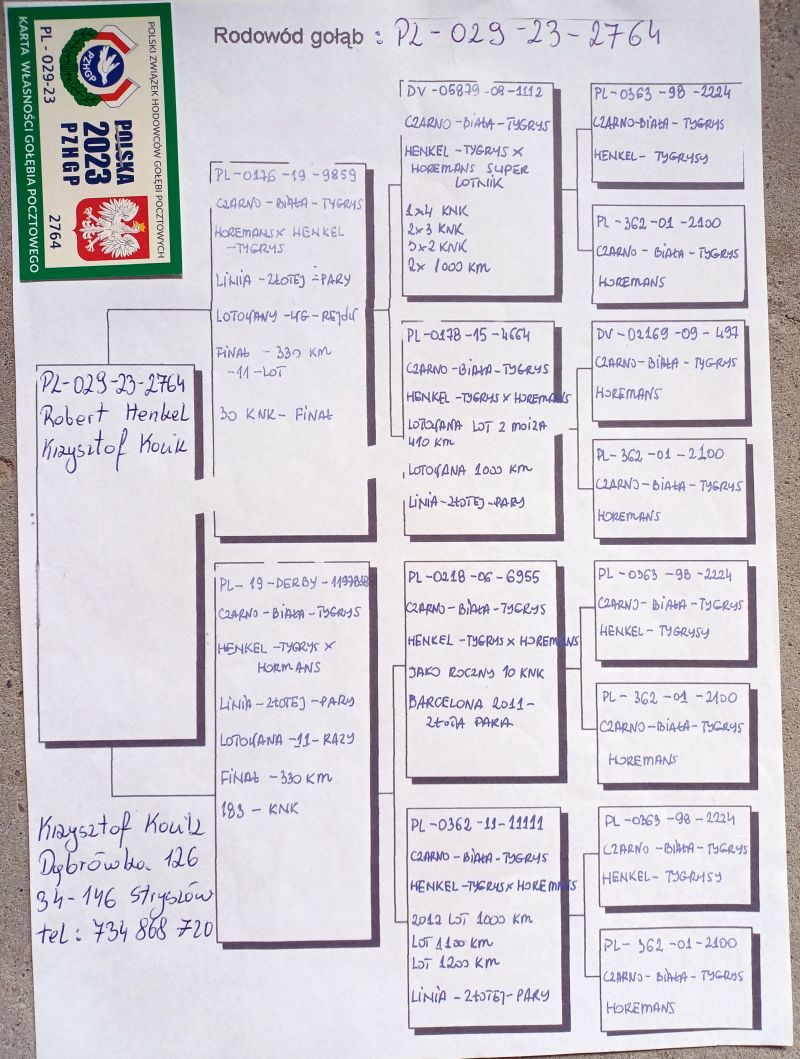 POLSKI ZWIĄZEK HODOWCÓW GOŁĘBI POCZTOWYCH
POLSKA
2023
PZHGP
PZHGP
PL - 029-23
2764
KARTA WŁASNOŚCI GOŁĘBIA POCZTOWEGO
Rodowód gołąb : PL-029-23-2764
PL-029-23-2764
Robert Henkel
Krzysztof
PL-0176-19-9859
CZARNO-BIAŁA-TYGRYS
HOREMANS X HENKEL
-TYGRYS
LINIA-ZŁOTEJ-PARY
LOTOWANY-4G-REJDU
FINAŁ - 330 KM
-11-LOT
30 KNK-FINAŁ
PL-19-DERBY-
CZARNO-BIAŁA-TYGRYS
HENKEL-TYGRYS X
HORMANS
LINIA-ZŁOTEJ-PARY
LOTOWANA-11-RAZY
FINAŁ-330 KM
183-KNK
DV-05879-08-1112
CZARNO-BIAŁA-TYGRYS
HENKEL-TYGRYS X
HOREMANS SUPER
LOTNIK
1x4 KNK
2x3 KNK
5x2 KNK
2x 1000 KM
PL-0178-15-4664
CZARNO-BIAŁA-TYGRYS
HENKEL-TYGRYS X HOREMANS
LOTOWANA LOT 2 MOIZA
410 KM
LOTOWANA 1000 KM
LINIA-ZŁOTEJ-PARY
PL-0218-06-6955
CZARNO-BIAŁA-TYGRYS
HENKEL-TYGRYS X HOREMANS
JAKO ROCZNY 10 KNK
BARCELONA 2011-
ZŁOTA PARA
PL-0362-11-11111
CZARNO-BIAŁA-TYGRYS
HENKEL-TYGRYS X HOREMANS
2012 LOT 1000 KM
LOT 1100 KM
LOT 1200 KM
LINIA-ZŁOTEJ-PARY
PL-0363-98-2224
CZARNO-BIAŁA-TYGRYS
HENKEL-TYGRYSY
PL-362-01-2100
CZARNO-BIAŁA-TYGRYS
HOREMANS
DV-02169-09-497
CZARNO-BIAŁA-TYGRYS
HOREMANS
PL-362-01-2100
CZARNO-BIAŁA-TYGRYS
HOREMANS
PL-0363-98-2224
CZARNO-BIAŁA-TYGRYS
HENKEL-TYGRYSY
PL-362-01-2100
CZARNO-BIAŁA-TYGRYS
HOREMANS
PL-0363-98-2224
CZARNO-BIAŁA-TYGRYS
HENKEL-TYGRYSY
PL-362-01-2100
CZARNO-BIAŁA-TYGRYS
HOREMANS
Krzysztof
Dąbrówka 126
34-146 Stryszów
tel: 734 868 720